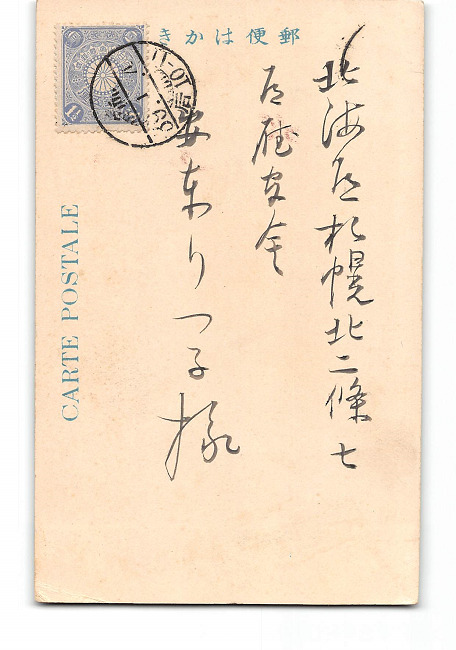 郵便はかき
北海道札幌北二條七
道廳官舎
安東りつ子様
CARTE POSTALE